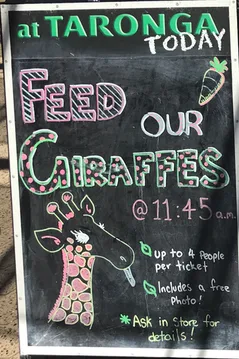 at TARONGA
TODAY
FEED
OUR
GIRAFFES
@ 11:45 a.m.
up to 4 People
per ticket
Includes a free
Photo!
* Ask in Store for
details!